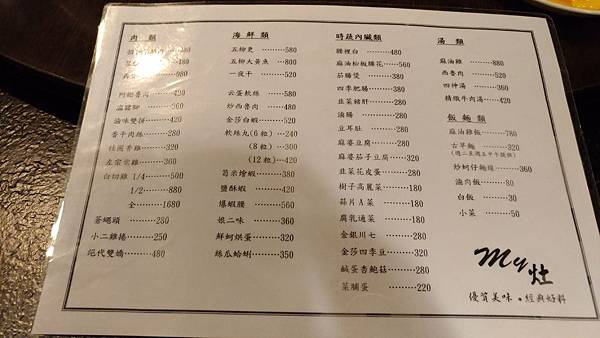 肉類
380
520
阿鬆魯肉 460
滷味雙拼 420
香干肉絲 310
桂圓香雞 360
左宗棠雞 360
白切雞 1/4 500
1/2 880
全 1680
蒼蠅頭 280
小二雞捲 250
絕代雙嬌 480
海鮮類
五柳更 580
五柳大黃魚 800
一夜干 520
云蛋軟絲 580
炒西魯肉 480
金莎白蝦 520
軟絲丸(6粒) 240
(8粒) 300
(12粒) 420
筍米燴蝦 380
鹽酥蝦 420
爆蝦腰 560
娘二味 360
鮮蚵烘蛋 320
絲瓜蛤蜊 350
時蔬內臟類
腰裡白 480
麻油松板腰花 560
茄腸煲 380
四季肥腸 380
韭菜豬肝 280
滷腸 280
豆耳肚 280
麻婆豆腐 280
麻婆茄子豆腐 320
韭菜花皮蛋 280
樹子高麗菜 180
蒜片A菜 180
腐乳通菜 180
金銀川七 280
金莎四季豆 320
鹹蛋杏鮑菇 280
菜脯蛋 220
湯類
麻油雞 880
西魯肉 520
四神湯 360
精緻牛肉湯 420
飯麵類
麻油雞飯 780
古早麵 320
(週二至週五中午提供)
炒蚵仔麵線 360
滷肉飯 80
白飯 30
小菜 50
My灶
優質美味.經典好料